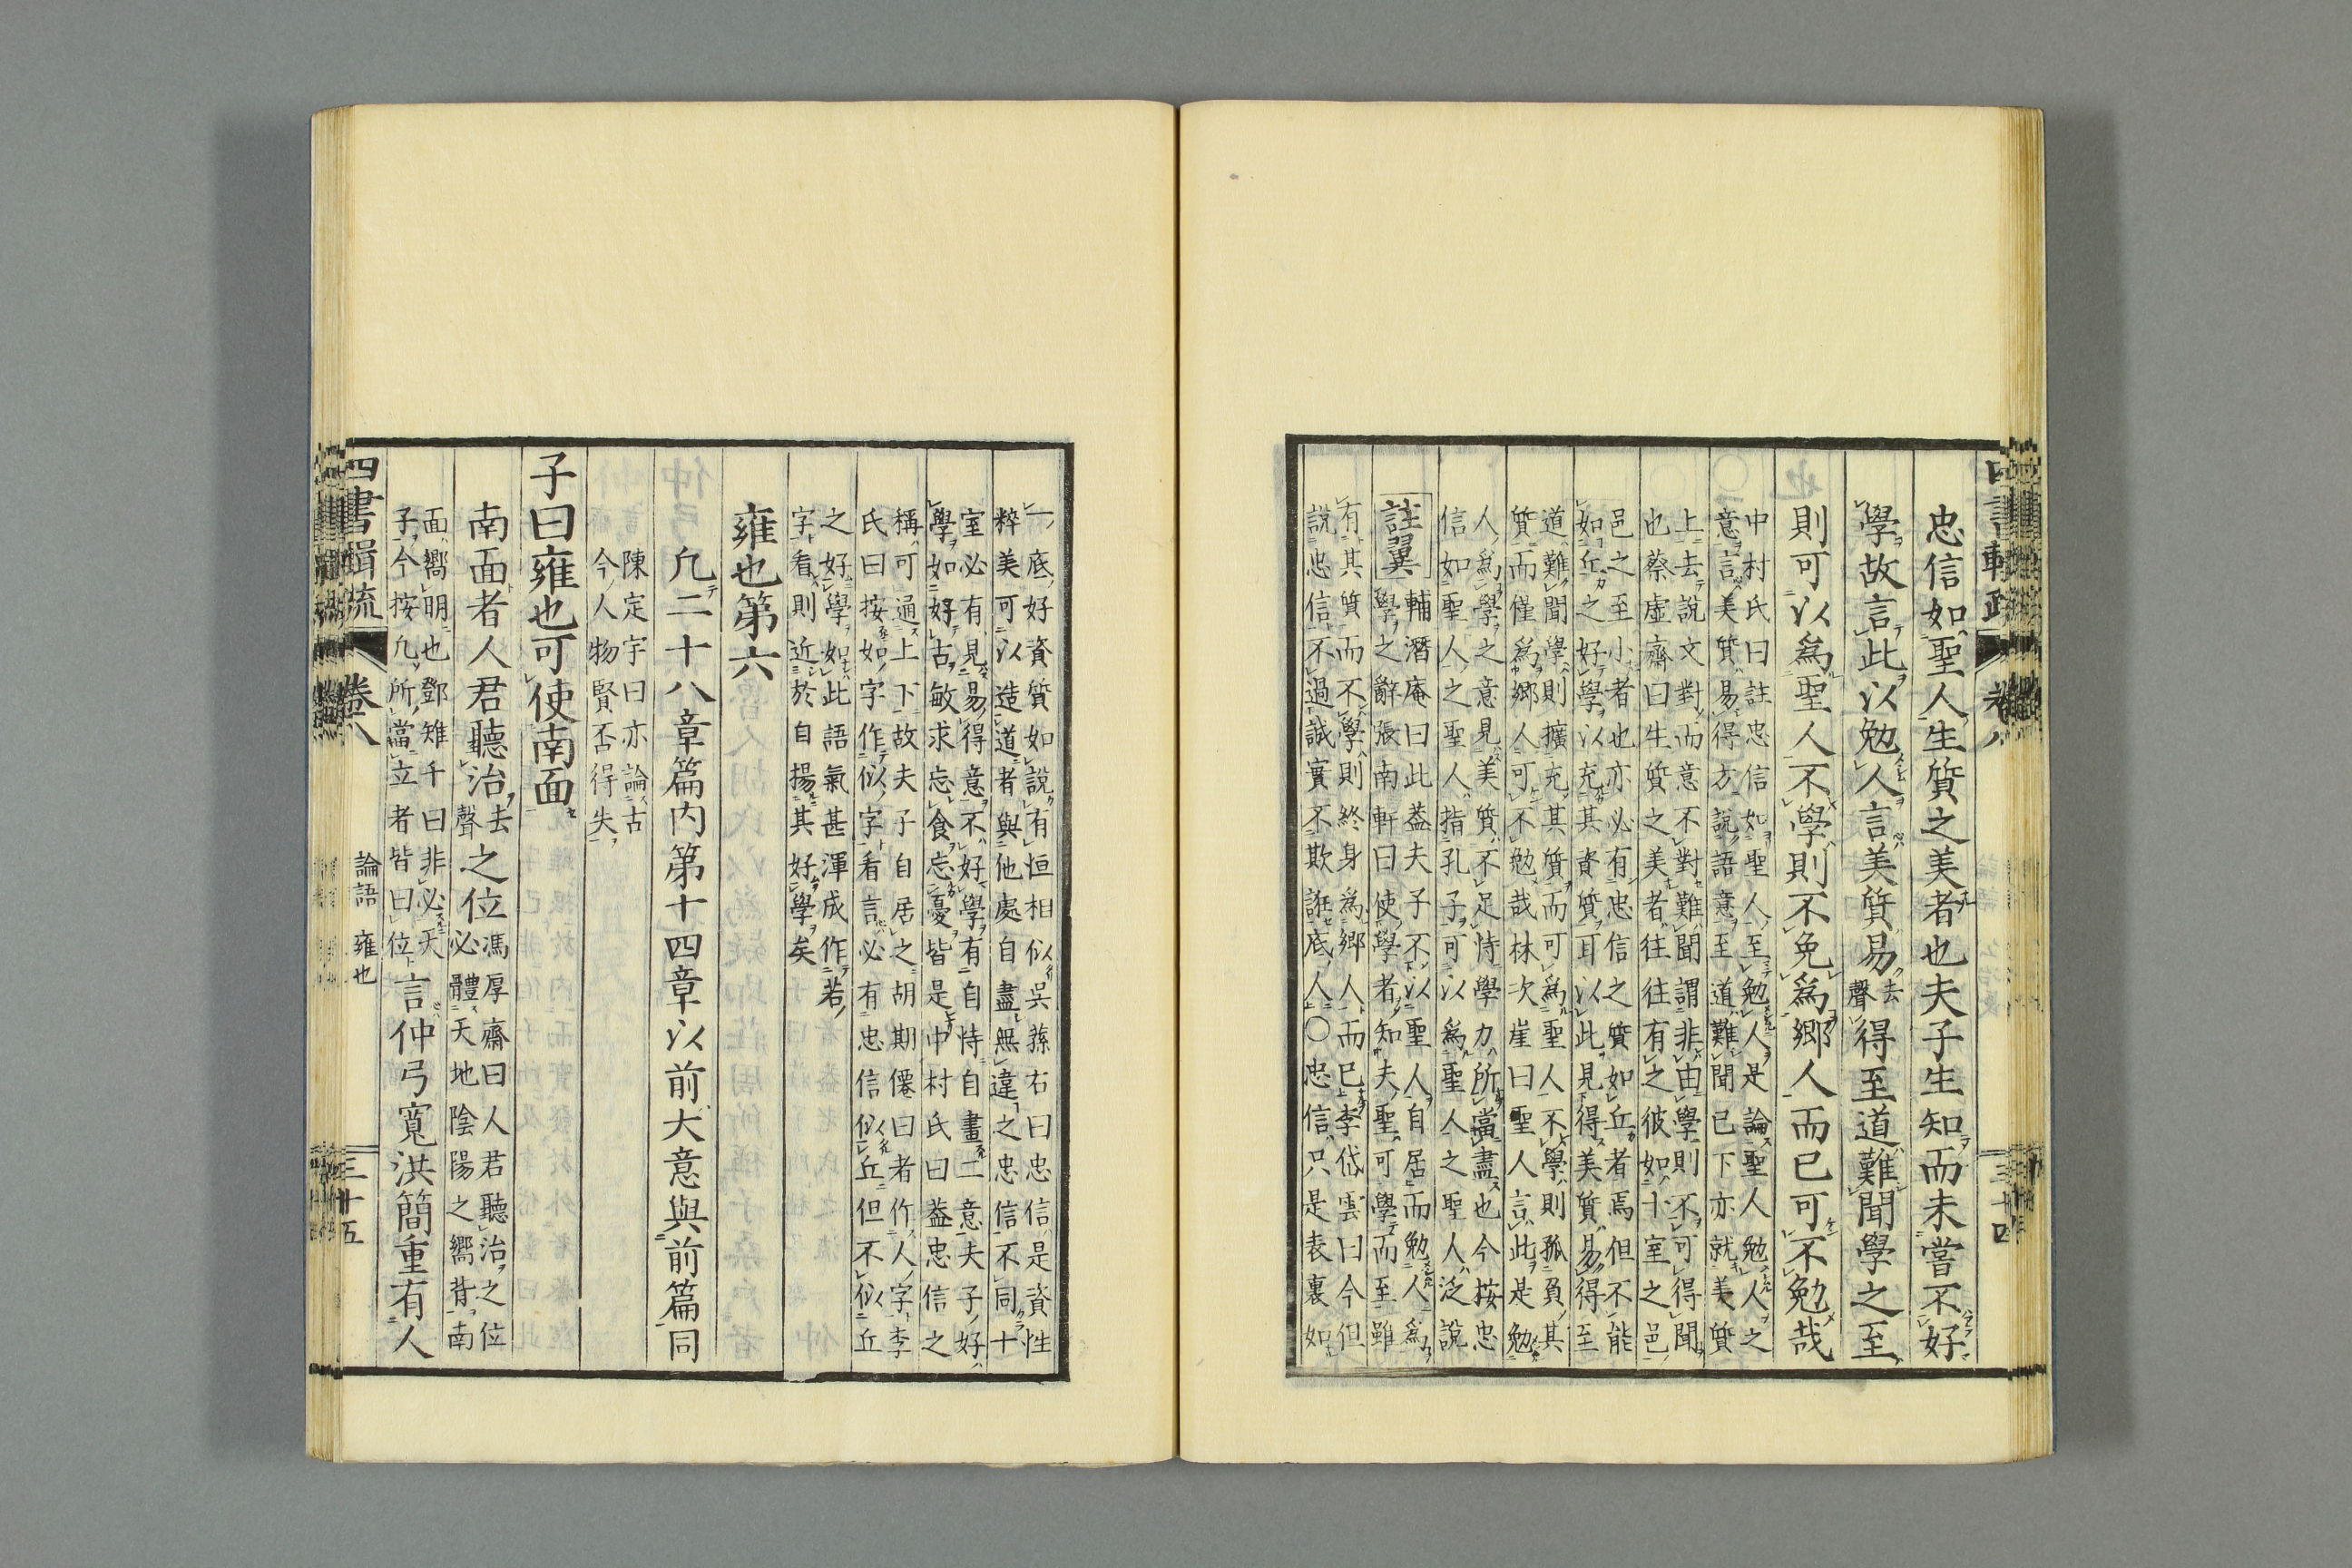 忠信如聖人生質之美者也夫子生知而未嘗不好
學故言此以勉人言美質易去聲得至道難聞學之至
則可以爲聖人不學則不免爲鄉人而已可不勉哉
中村氏曰註忠信如聖人至勉人是論聖人勉人之
意言美質易得方說語意至道難聞已下亦就美質
上去說文對而意不對難聞謂非由學則不可得聞
也蔡虛齋曰生質之美者往往有之彼如十室之邑
邑之至小者也亦必有忠信之質如丘者焉但不能
如丘之好學以充其資質耳以此見得美質易得至
道難聞學則擴充其質而可爲聖人不學則孤負其
質而僅爲鄉人可不勉哉林次崖曰聖人言此是勉
人爲學之意見美質不足恃學力所當盡也今按忠
信如聖人之聖人指孔子可以爲聖人之聖人泛說
註翼 輔潛庵曰此葢夫子不以聖人自居而勉人爲
學之辭張南軒曰使學者知夫聖可學而至雖
有其質而不學則終身爲鄉人而已李岱雲曰今但
說忠信不過誠實不欺誑底人〇忠信只是表裏如
四書輯疏 卷八 三十四
一底好資質如說有恒相似吳蓀右曰忠信是資性
粹美可以造道者與他處自盡無違之忠信不同十
室必有見易得意不好學有自恃自畫二意夫子好
學如好古敏求忘食忘憂皆是中村氏曰葢忠信之
稱可通上下故夫子自居之胡期僊曰者作人字李
氏曰按如字作似字看言必有忠信似丘但不似丘
之好學如此語氣甚渾成作若
字看則近於自揚其好學矣
雍也第六
凢二十八章篇内第十四章以前大意與前篇同
陳定宇曰亦論古
今人物賢否得失
子曰雍也可使南面
南面者人君聽治去聲之位馮厚齋曰人君聽治之位
必體天地陰陽之嚮背南
面嚮明也鄧雉千曰非必天
子今按凢所當立者皆曰位言仲弓寬洪簡重有人
四書輯疏 卷八 論語 雍也 三十五